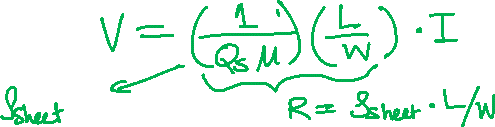 V = (1/(Qs μ)) (L/W) · I
ρsheet
R = ρsheet · L/W